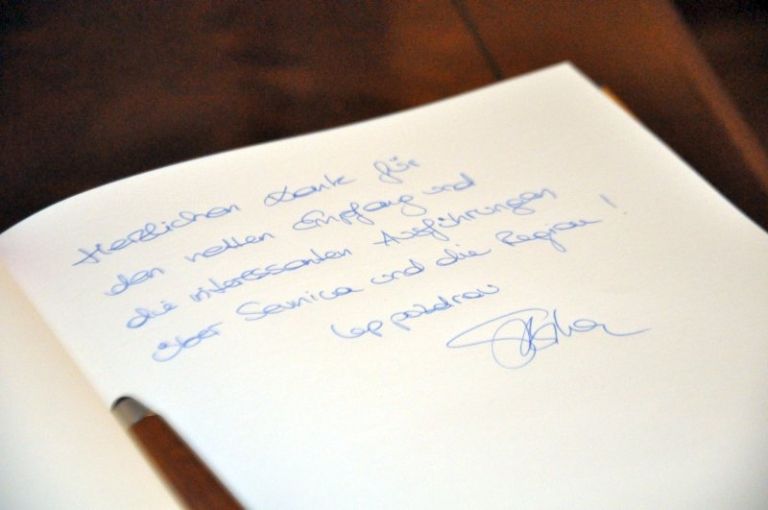 Herzlichen Dank für
den netten Empfang und
die interessanten Ausführungen
über Sevnica und die Region!
Lep pozdrav